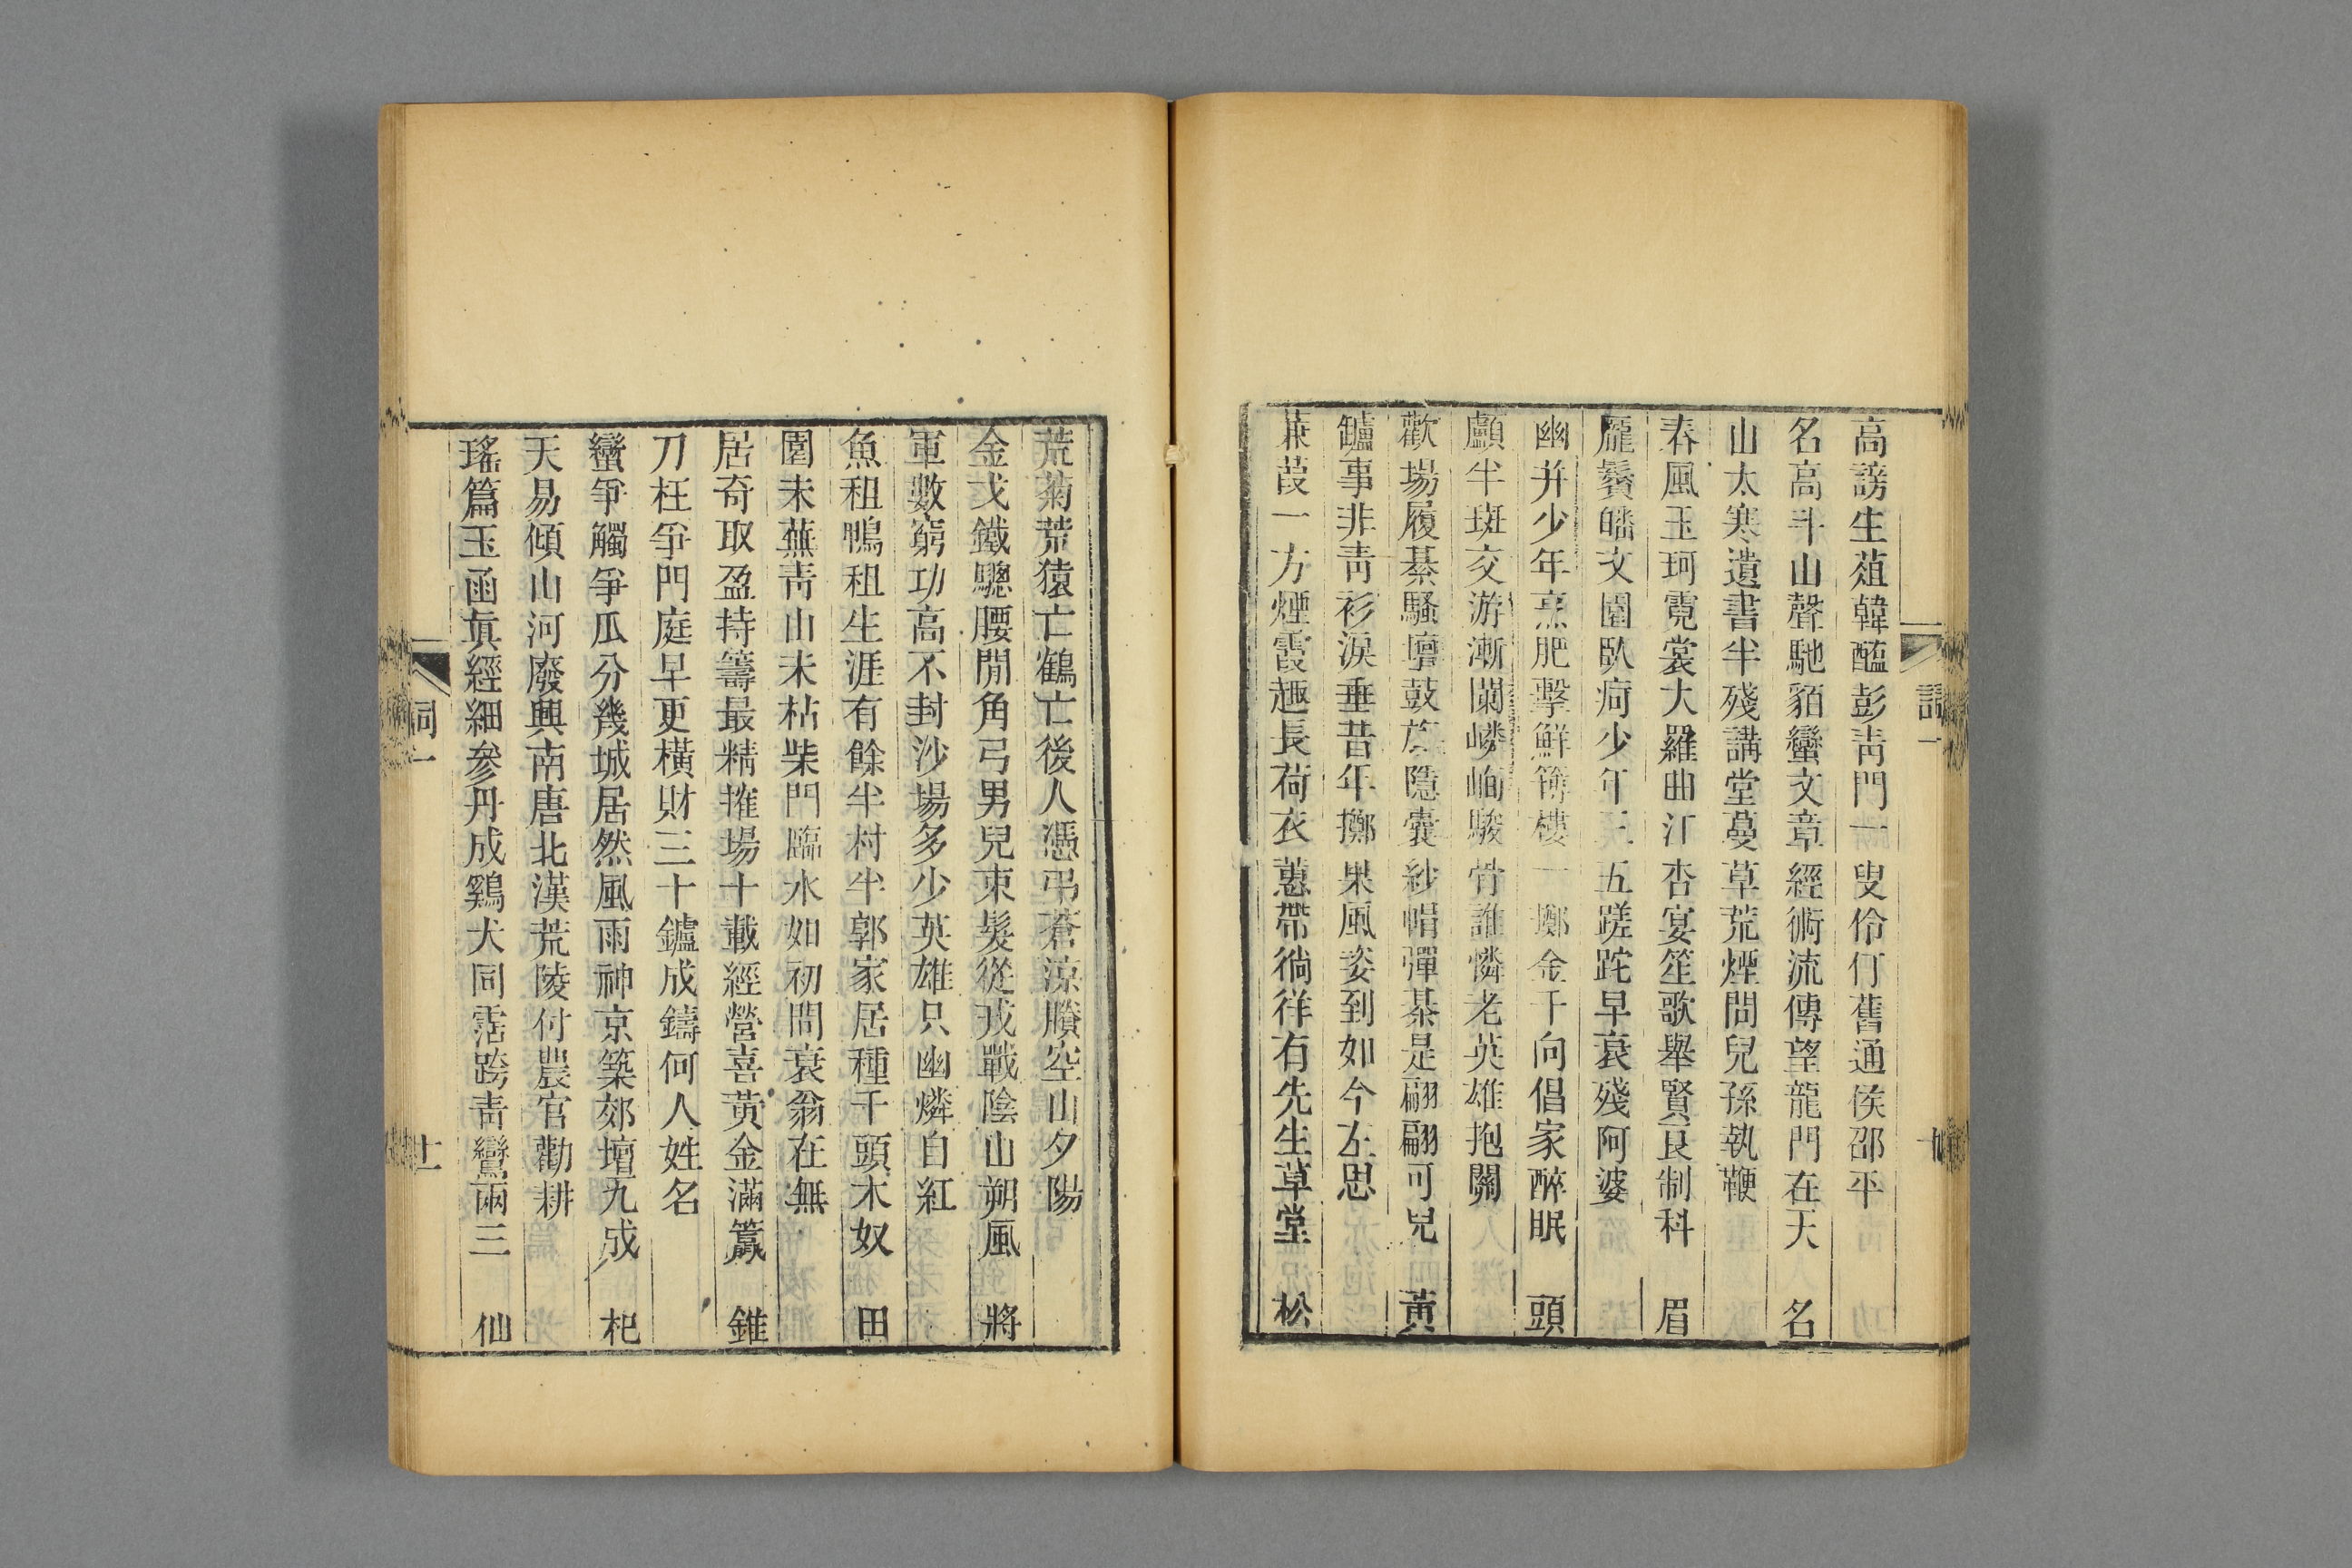 高謗生葅韓醢彭靑門一叟伶仃舊通侯邵平
名高斗山聲馳貊蠻文章經術流傳望龍門在天 名
山太寒遺書半殘講堂蔓草荒煙問兒孫執鞭
春風玉珂霓裳大羅曲江杏宴笙歌舉賢良制科 眉
龐鬢皤文園臥疴少年三五蹉跎早衰殘阿婆
幽并少年烹肥擊鮮簿樓一擲金千向倡家醉眠 頭
顱半斑交游漸闌嶙峋駿骨誰憐老英雄抱關
歡場履綦騷壇鼓旗隱囊紗帽彈棊是翩翩可兒 黃
鑪事非靑衫淚垂昔年擲果風姿到如今左思
蒹葭一方煙霞趣長荷衣蕙帶徜徉有先生草堂 松
荒菊荒猿亡鶴亡後人憑弔蒼涼賸空山夕陽
金戈鐵驄腰閒角弓男兒束髮從戎戰陰山朔風 將
軍數窮功高不封沙場多少英雄只幽燐自紅
魚租鴨租生涯有餘半村半郭家居種千頭木奴 田
園未蕪靑山未枯柴門臨水如初問衰翁在無
居奇取盈持籌最精搉場十載經營喜黃金滿籯 錐
刀枉爭門庭早更橫財三十鑪成鑄何人姓名
蠻爭觸爭瓜分幾城居然風雨神京築郊壇九成 杞
天易傾山河廢興南唐北漢荒陵付農官勸耕
瑤篇玉函眞經細參丹成鷄犬同霑跨靑鸞兩三 仙
詞一
十一